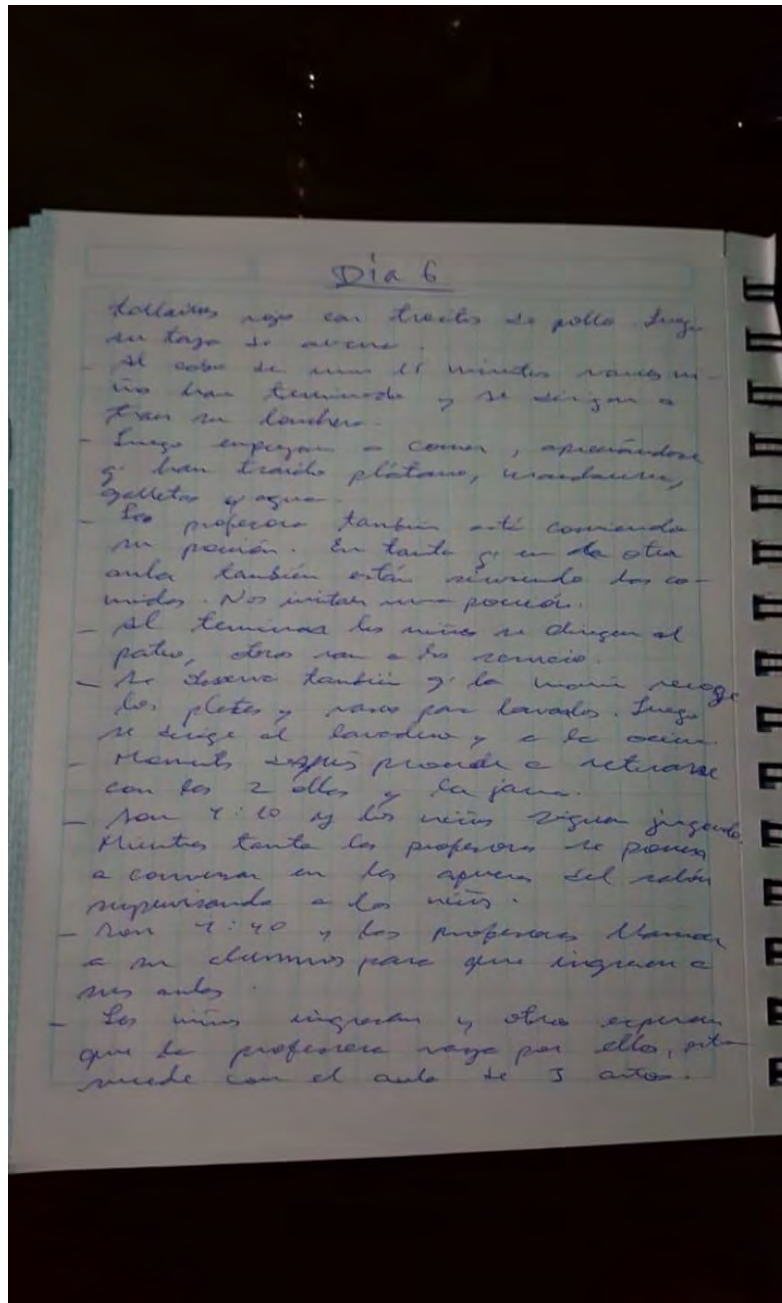 Día 6
tallarines rojo con trocitos de pollo. Luego
su taza de avena.
- Al cabo de unos 15 minutos varios ni-
ños han terminado y se dirigen a
traer su lonchera.
- Luego empiezan a comer, apreciándose
q' han traído plátano, mandarina,
galletas y agua.
- Las profesora también está comiendo
su porción. En tanto q' en la otra
aula también están sirviendo las co-
midas. Nos invitan una porción.
- Al terminar los niños se dirigen al
patio, otros van a los servicio.
- Se observa también q' la mamá recoge
los platos y vasos por lavarlos. Luego
se dirige al lavadero y a la cocina.
- Momento después procede a retirarse
con las 2 ollas y la jarra.
- Son 4:20 y los niños siguen jugando.
Mientras tanto las profesoras se ponen
a conversar en las afueras del salón
supervisando a los niños.
- Son 4:40 y las profesoras llaman
a su alumnos para que ingresen a
sus aulas.
- Los niños ingresan y otros esperan
que la profesora vaya por ellos, esto
sucede con el aula de 3 años.